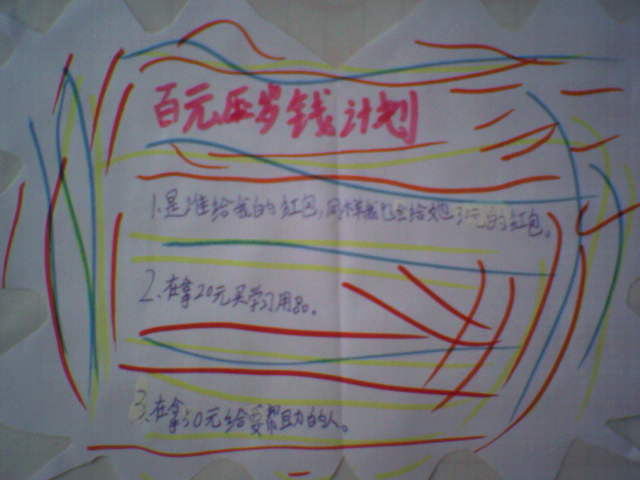 百元压岁钱计划
1.是谁给我的红包,同样我也会给她30元的红包。
2、在拿20元买学习用品。
3、在拿50元给要帮助的人。